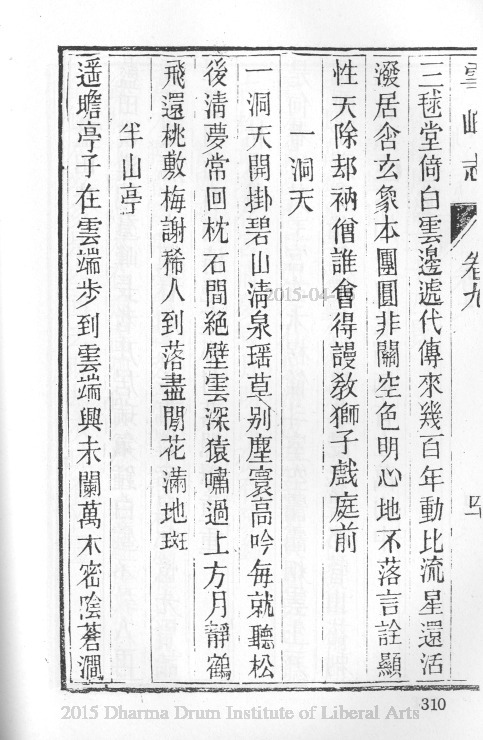 雲峰志 卷九
三毬堂倚白雲邊遞代傳來幾百年動比流星還活
潑居含玄象本團圓非關空色明心地不落言詮顯
性天除却衲僧誰會得謾教獅子戲庭前
一洞天
一洞天開掛碧山清泉瑶草别塵寰高吟每就聽松
後清夢常回枕石間絕壁雲深猿嘯過上方月靜鶴
飛還桃敷梅謝稀人到落盡閒花滿地斑
半山亭
遥瞻亭子在雲端步到雲端興未闌萬木密陰蒼澗
310
2015-04-
2015 Dharma Drum Institute of Liberal Arts